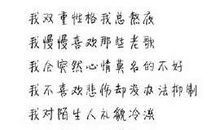 我双重性格我总熬夜
我慢慢喜欢那些老歌
我会突然心情莫名的不好
我不喜欢悲伤却没办法抑制
我对陌生人礼貌冷漠